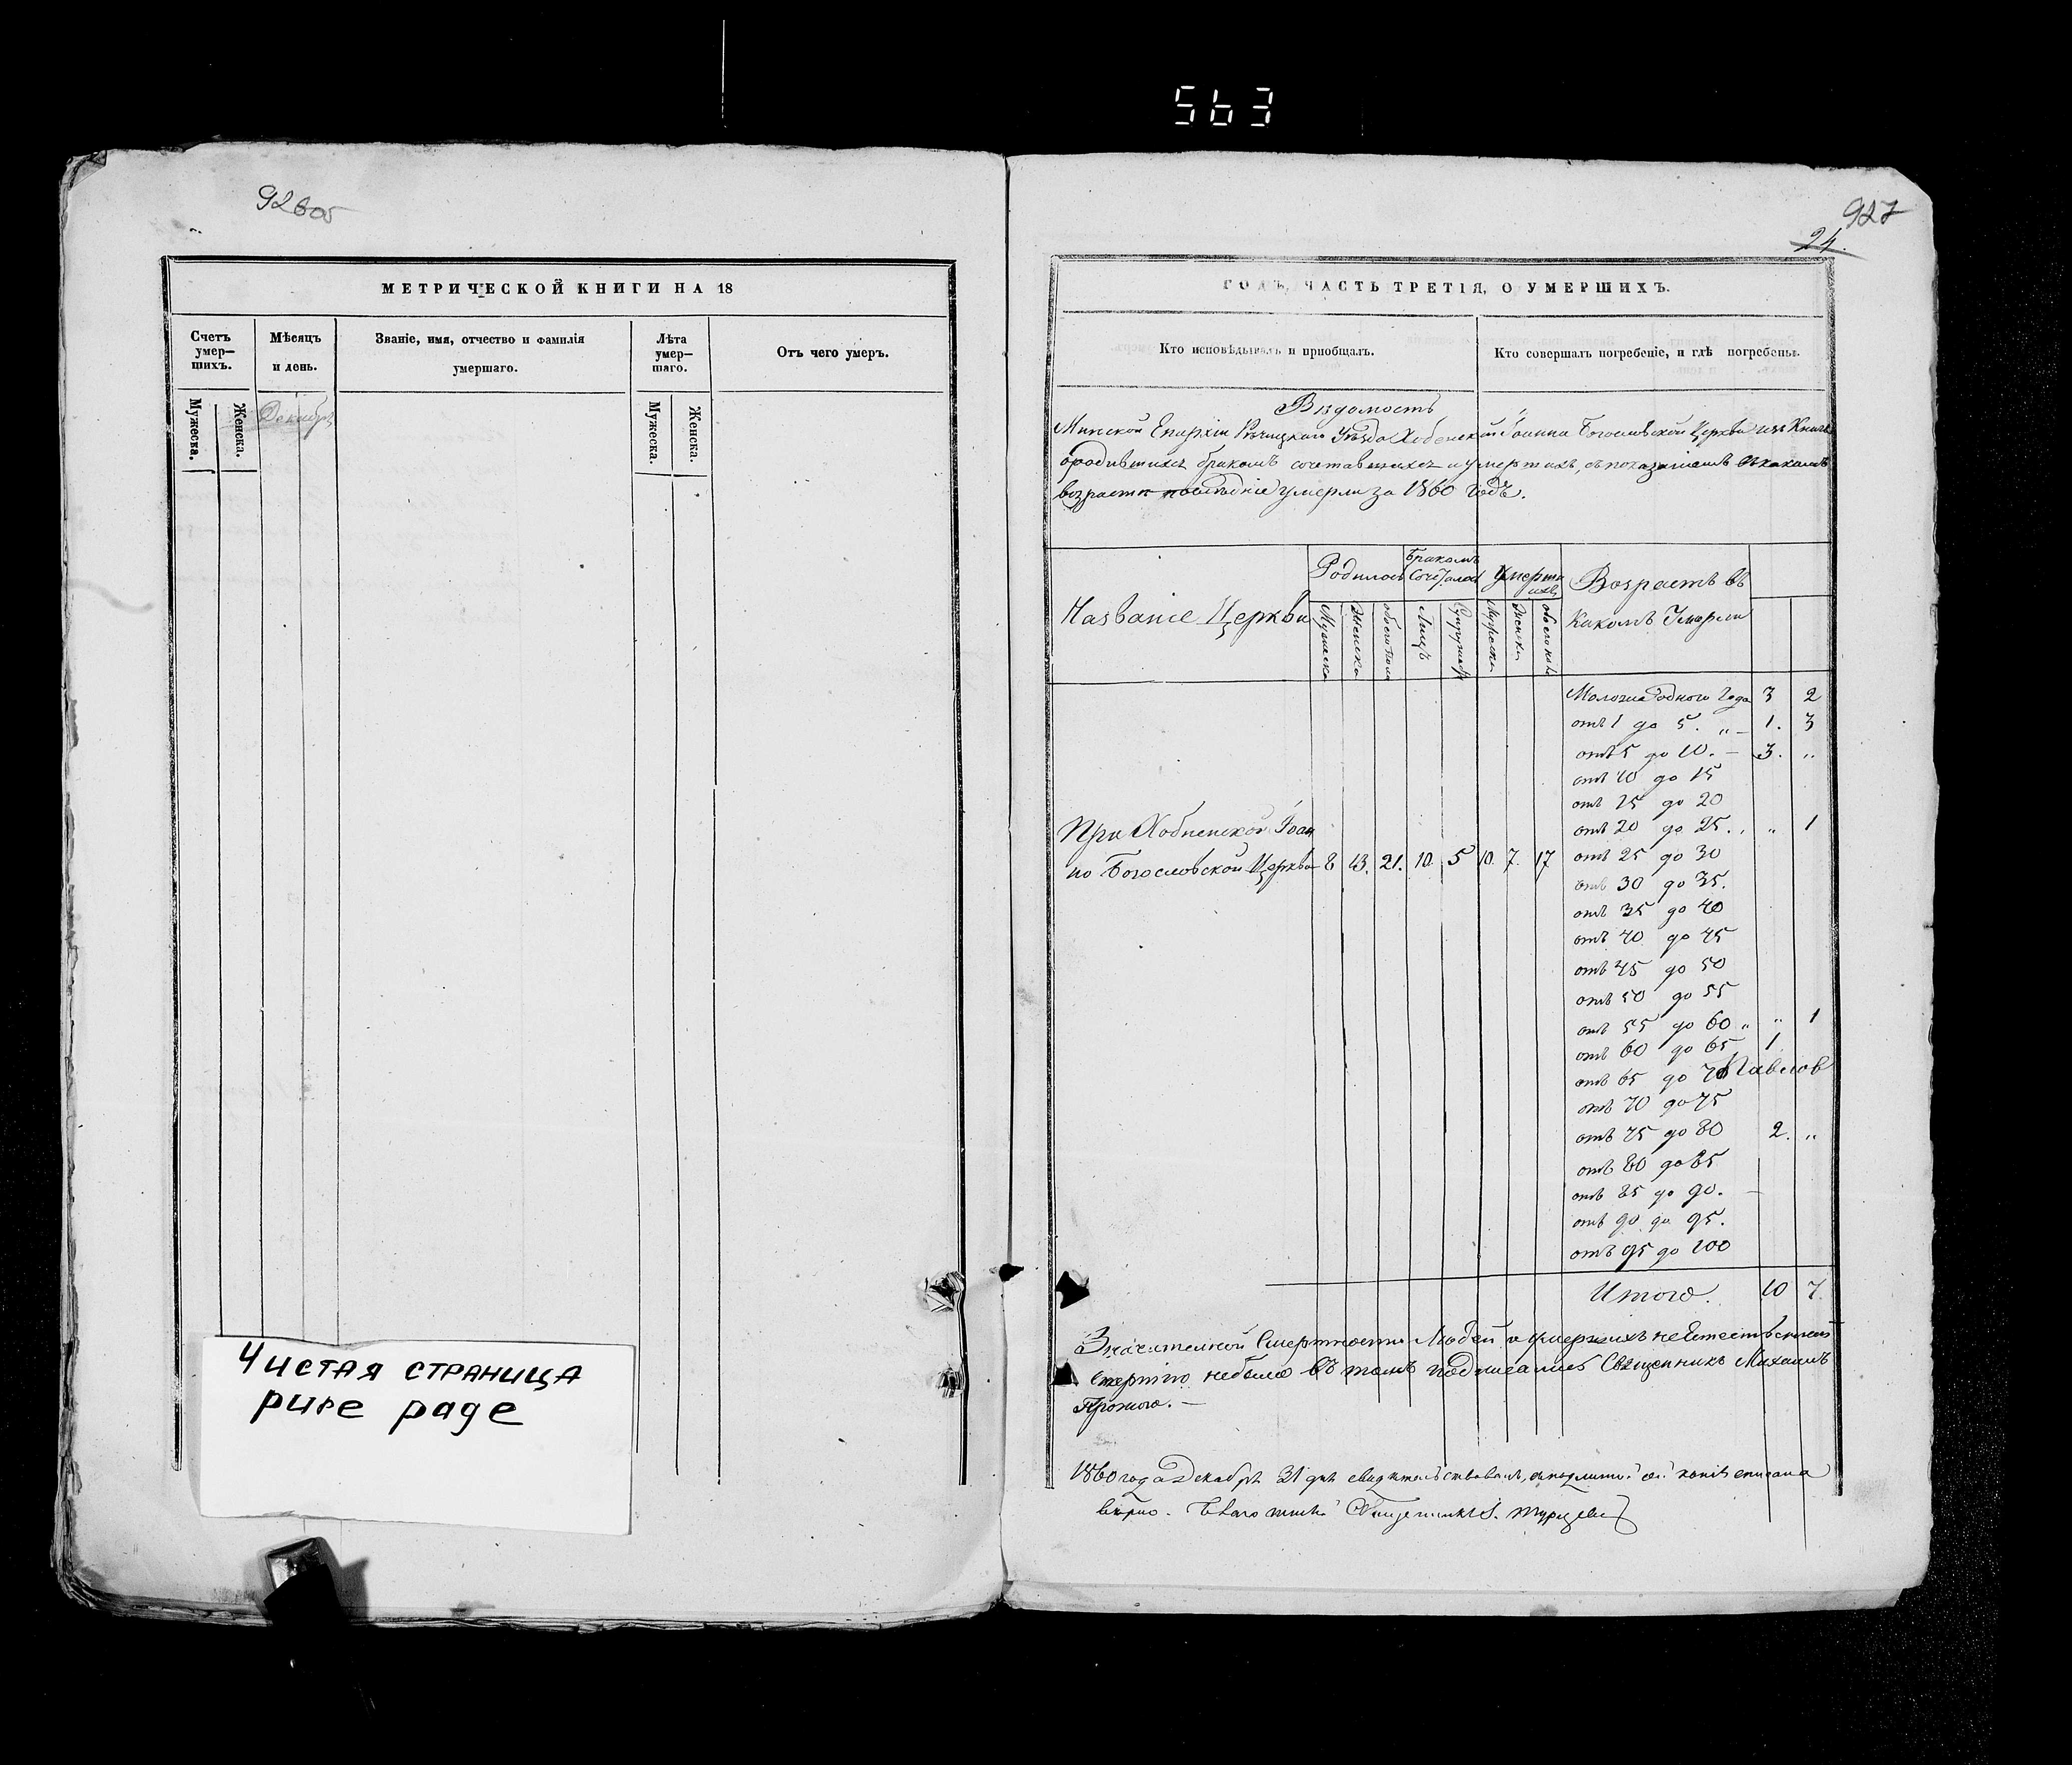 563
92 об
МЕТРИЧЕСКОЙ КНИГИ НА 18
Счетъ умер—шихъ.
Мужеска.
Женска.
Мѣсяцъ и день.
Званіе, имя, отчество и фамилія умершаго.
Лѣта умер—шаго.
Мужеска.
Женска.
Отъ чего умеръ.
Декабрь
Чистая страница
pure page
927
24.
ГОДЪ, ЧАСТЬ ТРЕТІЯ, О УМЕРШИХЪ.
Кто исповѣдывалъ и пріобщалъ.
Кто совершалъ погребеніе, и гдѣ погребены.
Вѣдомость
Минской Епархіи Рѣчицкаго Уѣзда Хобенской Іоанна Богословской Церкви изъ Книгъ
ородившихся бракомъ сочетавшихся и умершихъ, съ показаніемъ въ какомъ
возрастѣ последніе умерли за 1860 годъ.
Названіе Церкви
Родилось
Мужеска
Женска
обоего пола
Бракомъ Сочеталось
Лицъ
Супружествъ
Умершихъ
Мужеска
Женска
обоего пола
Возрастъ въ
Какомъ Умерли
При Хобненской Іоан
но Богословской Церкви 8 13. 21. 10. 5 10. 7. 17
Молочна одного Года 3 2
отъ 1 до 5. „ 1. 3
отъ 5 до 10. — 3. „
отъ 10 до 15
отъ 15 до 20
отъ 20 до 25. „ 1
отъ 25 до 30
отъ 30 до 35.
отъ 35 до 40
отъ 40 до 45
отъ 45 до 50
отъ 50 до 55
отъ 55 до 60 „ „ 1
отъ 60 до 65 1
отъ 65 до 70 Павлов
отъ 70 до 75
отъ 75 до 80 2. „
отъ 80 до 85
отъ 85 до 90. —
отъ 90 до 95.
отъ 95 до 100
Итого. 10 7.
Значительной Смертности Людей и умершихъ не Естественной
смертію небыло въ томъ подписался Священникъ Михаилъ
1860 года Декабря 31 дня свидѣтельствовалъ, копія списана
вѣрно. Благочинный Священникъ